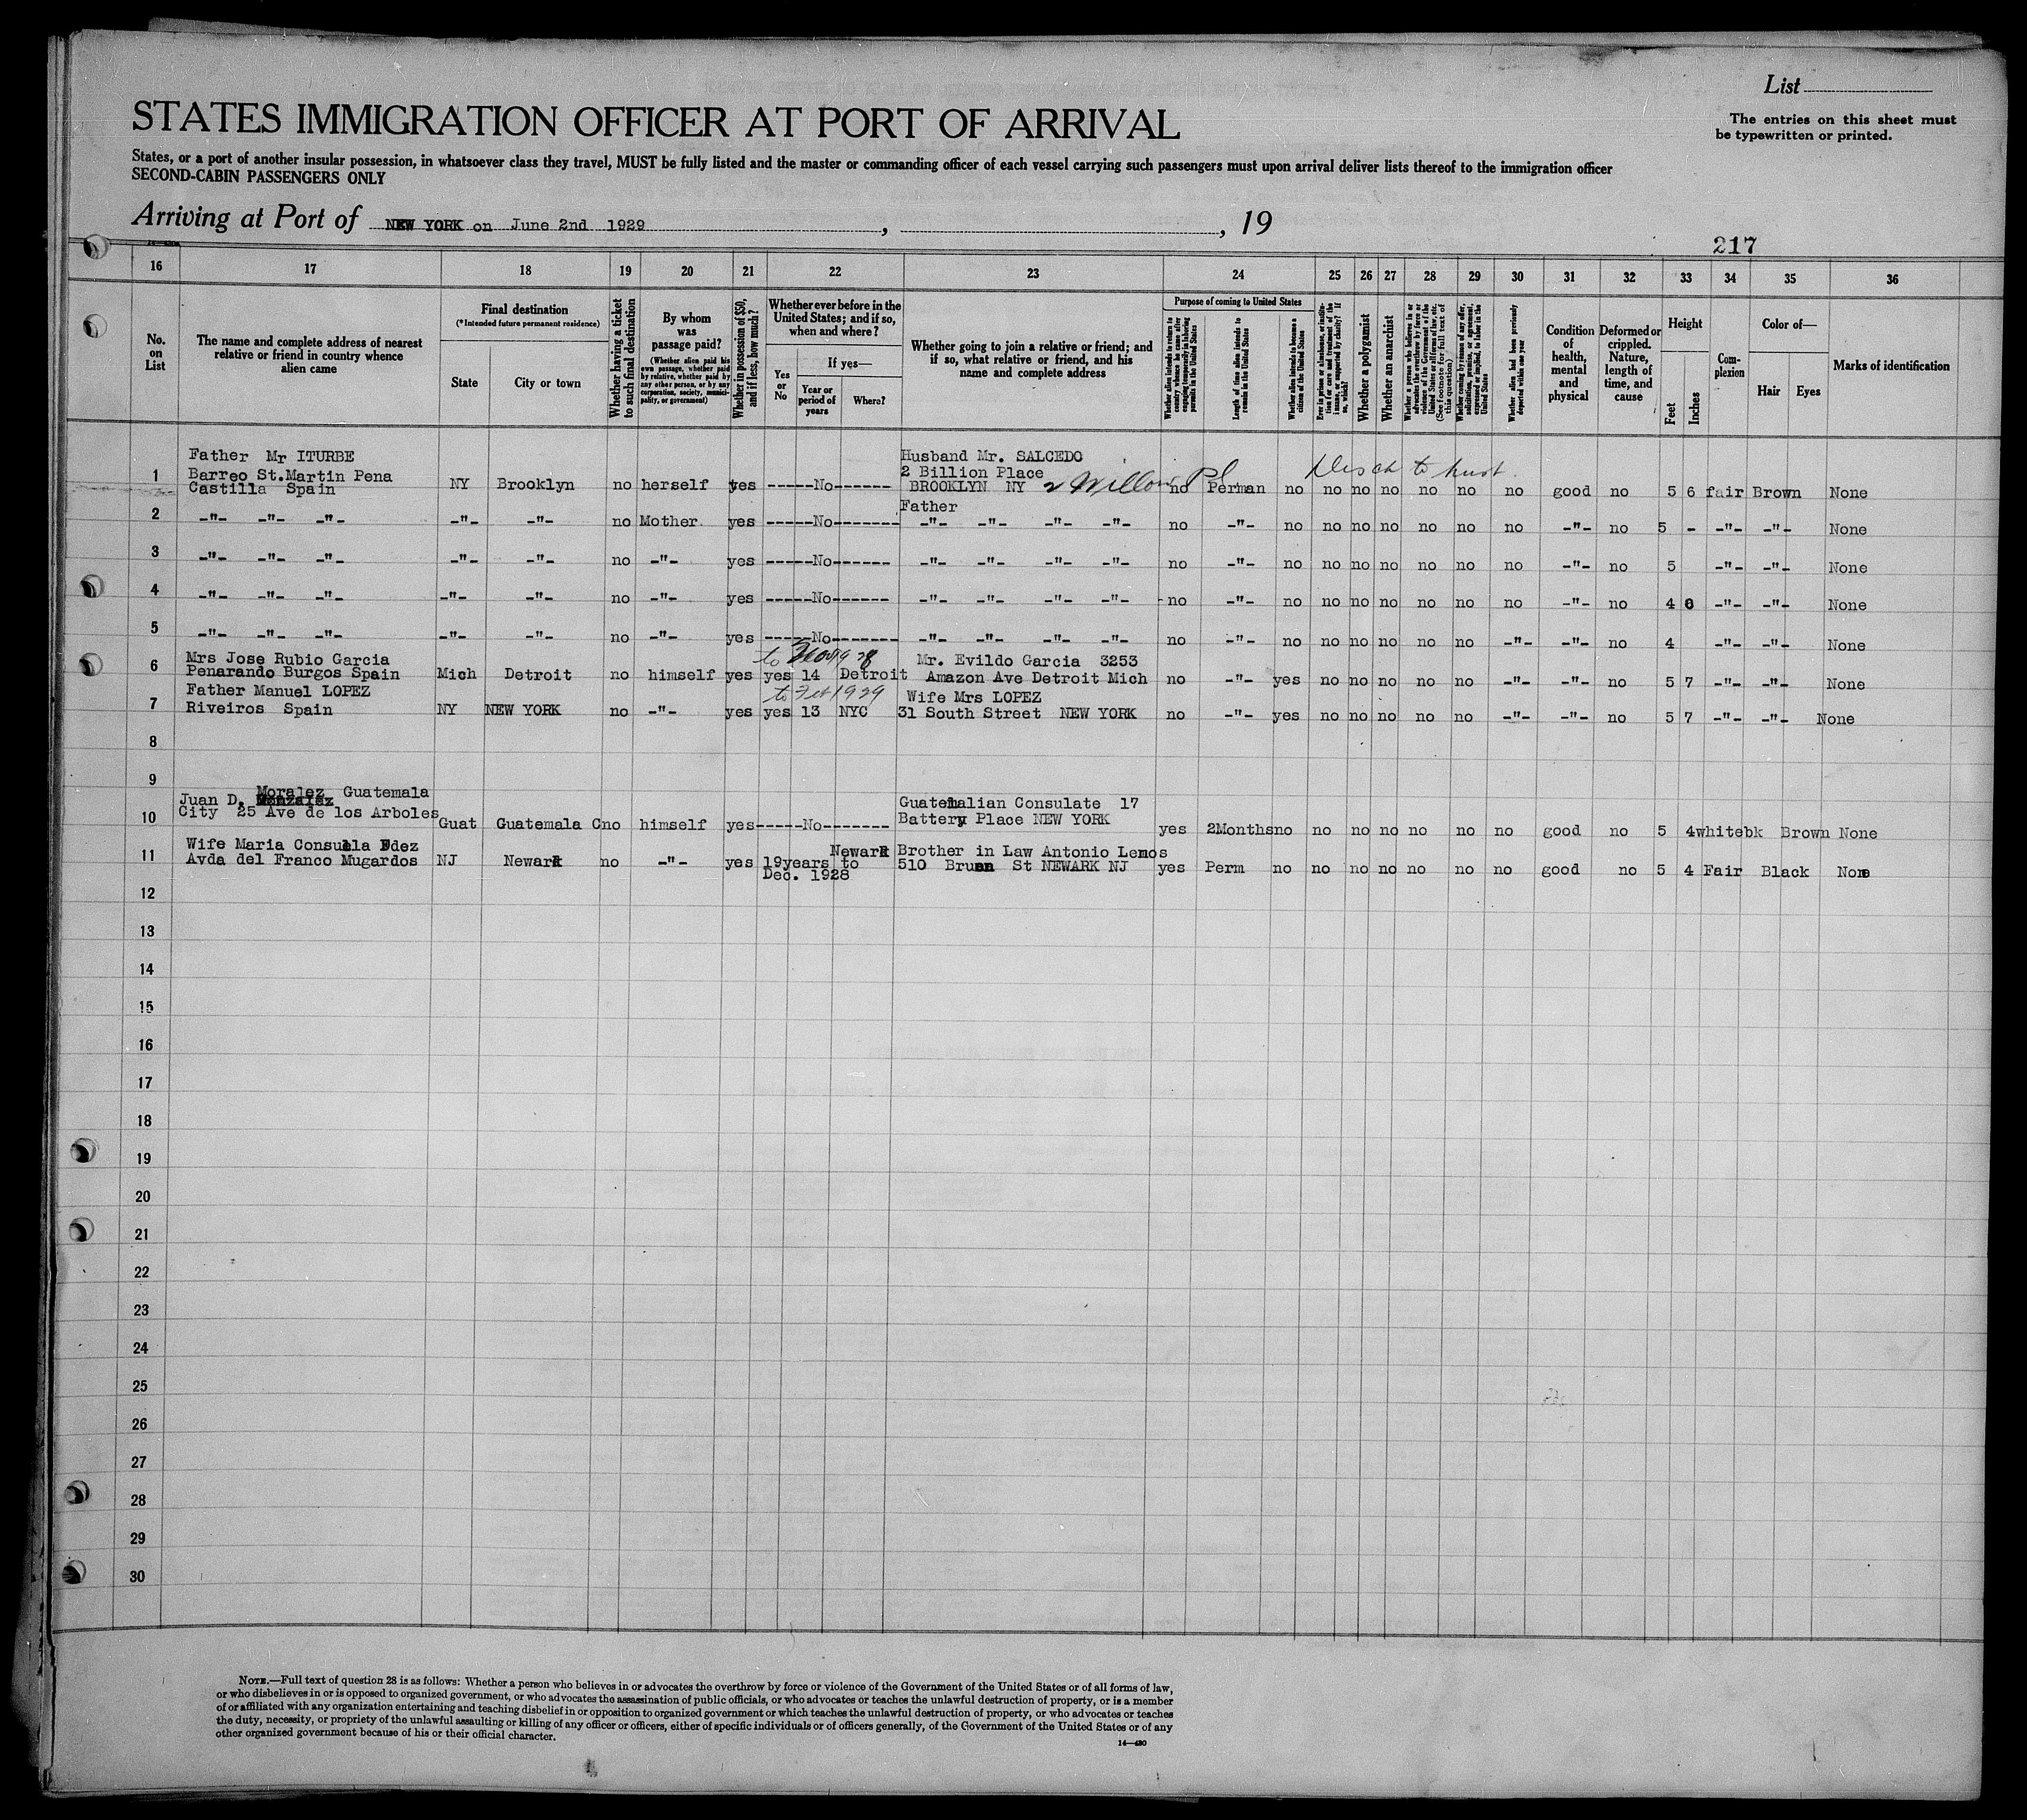 List
The entries on this sheet must
be typewritten or printed.
STATES IMMIGRATION OFFICER AT PORT OF ARRIVAL
States, or a port of another insular possession, in whatsoever class they travel, MUST be fully listed and the master or commanding officer of each vessel carrying such passengers must upon arrival deliver lists thereof to the immigration officer
SECOND-CABIN PASSENGERS ONLY
Arriving at Port of NEW YORK on June 2nd 1929, , 19
217
16 17 18 19 20 21 22 23 24 25 26 27 28 29 30 31 32 33 34 35 36
No. on List
The name and complete address of nearest relative or friend in country whence alien came
Final destination
(*Intended future permanent residence)
State
City or town
Whether having a ticket to such final destination
By whom was passage paid?
(Whether alien paid his own passage, whether paid by relative, whether paid by any other person, or by any corporation, society, municipality, or government)
Whether in possession of $50, and if less, how much?
Whether ever before in the United States; and if so, when and where?
Yes or No
If yes—
Year or period of years
Where?
Whether going to join a relative or friend; and if so, what relative or friend, and his name and complete address
Purpose of coming to United States
Whether alien intends to return to country whence he came after engaging temporarily in laboring pursuits in the United States
Length of time alien intends to remain in the United States
Whether alien intends to become a citizen of the United States
Ever in prison or almshouse, or institution for care and treatment of the insane, or supported by charity? If so, which?
Whether a polygamist
Whether an anarchist
Whether a person who believes in or advocates the overthrow by force or violence of the Government of the United States or all forms of law, etc. (See footnote for full text of this question)
Whether coming by reason of any offer, solicitation, promise, or agreement, expressed or implied, to labor in the United States
Whether alien had been previously deported within one year
Condition of health, mental and physical
Deformed or crippled. Nature, length of time, and cause
Height
Feet
Inches
Complexion
Color of—
Hair
Eyes
Marks of identification
Father Mr ITURBE Husband Mr. SALCEDO
Barreo St.Martin Pena 2 Billion Place
1 Castilla Spain NY Brooklyn no herself yes -----No------ BROOKLYN NY 2 Willow Pl no Perman no no no no no no no good no 5 6 fair Brown None
Father
2 -"- -"- -"- -"- -"- no Mother yes -----No------- -"- -"- -"- -"- no -"- no no no no no no no -"- no 5 - -"- -"- None
3 -"- -"- -"- -"- -"- no -"- yes -----No------ -"- -"- -"- -"- no -"- no no no no no no no -"- no 5 -"- -"- None
4 -"- -"- -"- -"- -"- no -"- yes -----No------ -"- -"- -"- -"- -no -"- no no no no no no no -"- no 4 6 -"- -"- None
5 -"- -"- -"- -"- -"- no -"- yes -----No------- -"- -"- -"- -"- no -"- no no no no no no -"- -"- no 4 -"- -"- None
Mrs Jose Rubio Garcia to Nov 1928 Mr. Evildo Garcia 3253
6 Penarando Burgos Spain Mich Detroit no himself yes yes 14 Detroit Amazon Ave Detroit Mich no -"- yes no no no no no -"- -"- no 5 7 -"- -"- None
Father Manuel LOPEZ to Feb 1929 Wife Mrs LOPEZ
7 Riveiros Spain NY NEW YORK no -"- yes yes 13 NYC 31 South Street NEW YORK no -"- yes no no no no no -"- -"- no 5 7 -"- -"- None
8
9
Moralez Guatemala
Juan D. Guatemalian Consulate 17
10 City 25 Ave de los Arboles Guat Guatemala C no himself yes-----No------- Battery Place NEW YORK yes 2Months no no no no no no no good no 5 4 white bk Brown None
Wife Maria Consuela Fdez Newark Brother in Law Antonio Lemos
11 Avda del Franco Mugardos NJ Newark no -"- yes 19years to 510 Bruen St NEWARK NJ yes Perm no no no no no no no good no 5 4 Fair Black None
Dec. 1928
12
13
14
15
16
17
18
19
20
21
22
23
24
25
26
27
28
29
30
NOTE.—Full text of question 28 is as follows: Whether a person who believes in or advocates the overthrow by force or violence of the Government of the United States or of all forms of law,
or who disbelieves in or is opposed to organized government, or who advocates the assassination of public officials, or who advocates or teaches the unlawful destruction of property, or is a member
of or affiliated with any organization entertaining and teaching disbelief in or opposition to organized government or which teaches the unlawful destruction of property, or who advocates or teaches
the duty, necessity, or propriety of the unlawful assaulting or killing of any officer or officers, either of specific individuals or of officers generally, of the Government of the United States or of any
other organized government because of his or their official character.
14—430